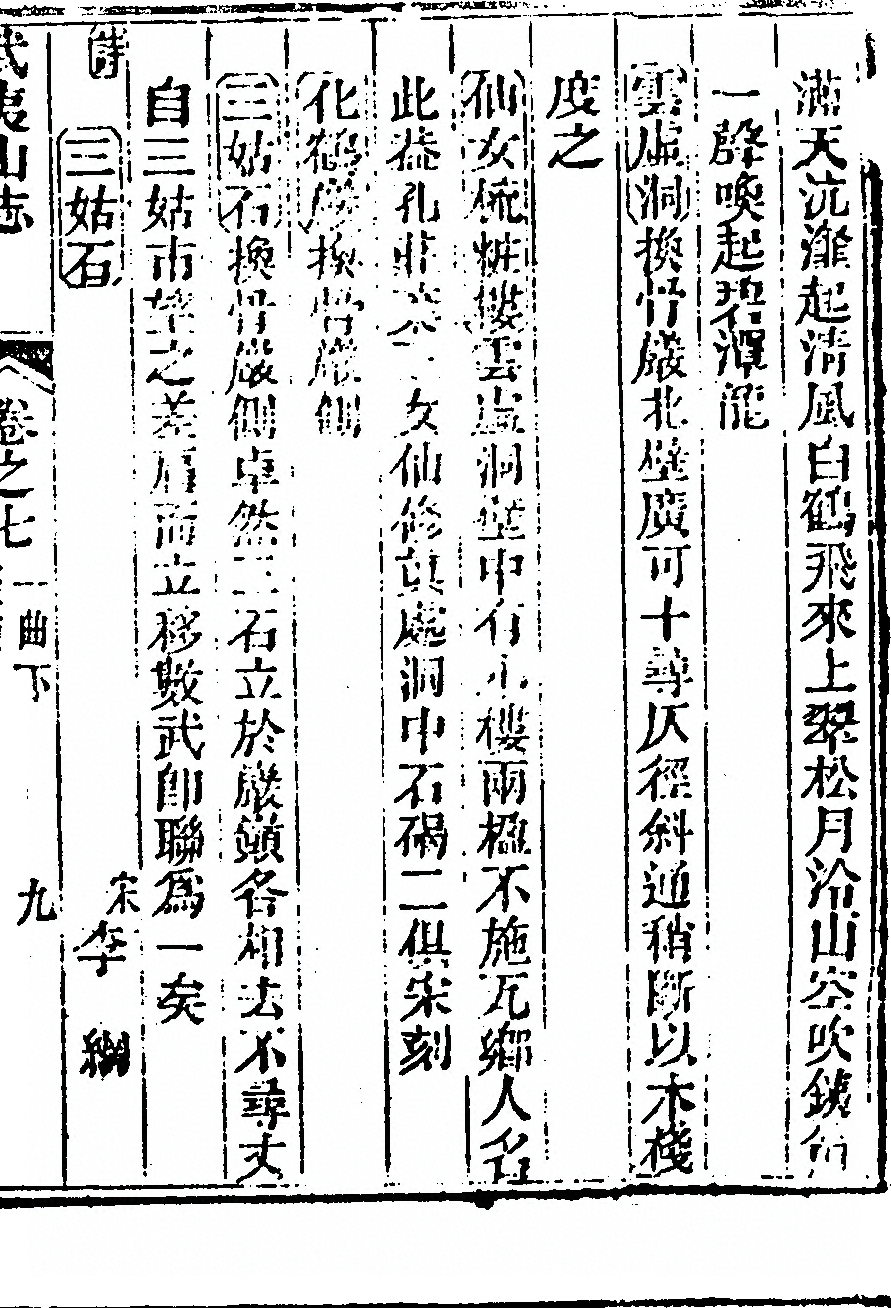 滿天沆瀣起清風白鶴飛來上翠松月冷山空吹鐵笛
一聲喚起碧潭龍
雲虛洞換骨巖北壁廣可十尋仄徑斜通稍斷以木棧
度之
仙女梳粧樓雲虛洞壁中有小樓兩楹不施瓦鄉人名
此葢孔莊葉三女仙修真處洞中石碣二俱宋刻
化鶴巖換骨巖側
三姑石換骨巖側卓然三石立於巖巔各相去不尋丈
自三姑市望之差肩而立移數武即聯爲一矣
詩
三姑石 宋李綱
武夷山志 卷之七 一曲下 九